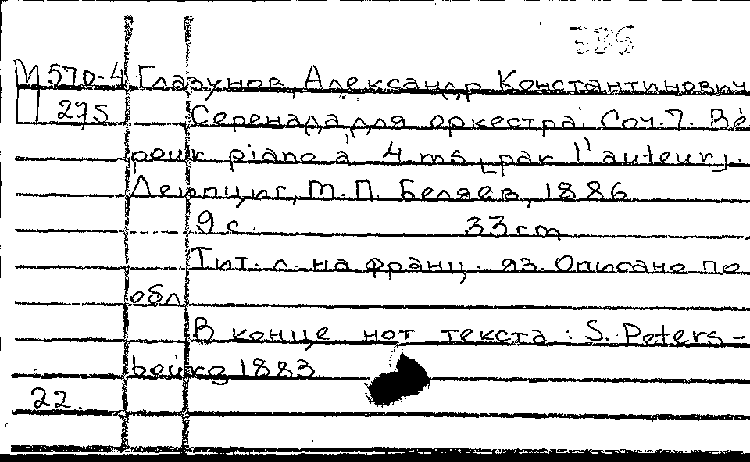 М 570-4 Глазунов, Александр Константинович
275 Серенада для оркестра. Соч. 7. Ré
pour piano à 4 ms [par l'auteur].
Лейпциг, М.П. Беляев, 1886
9 с. 33 cm
Тит. л. на франц. яз. Описано по
обл.
В конце нот текста: S. Peters-
bourg 1883
22